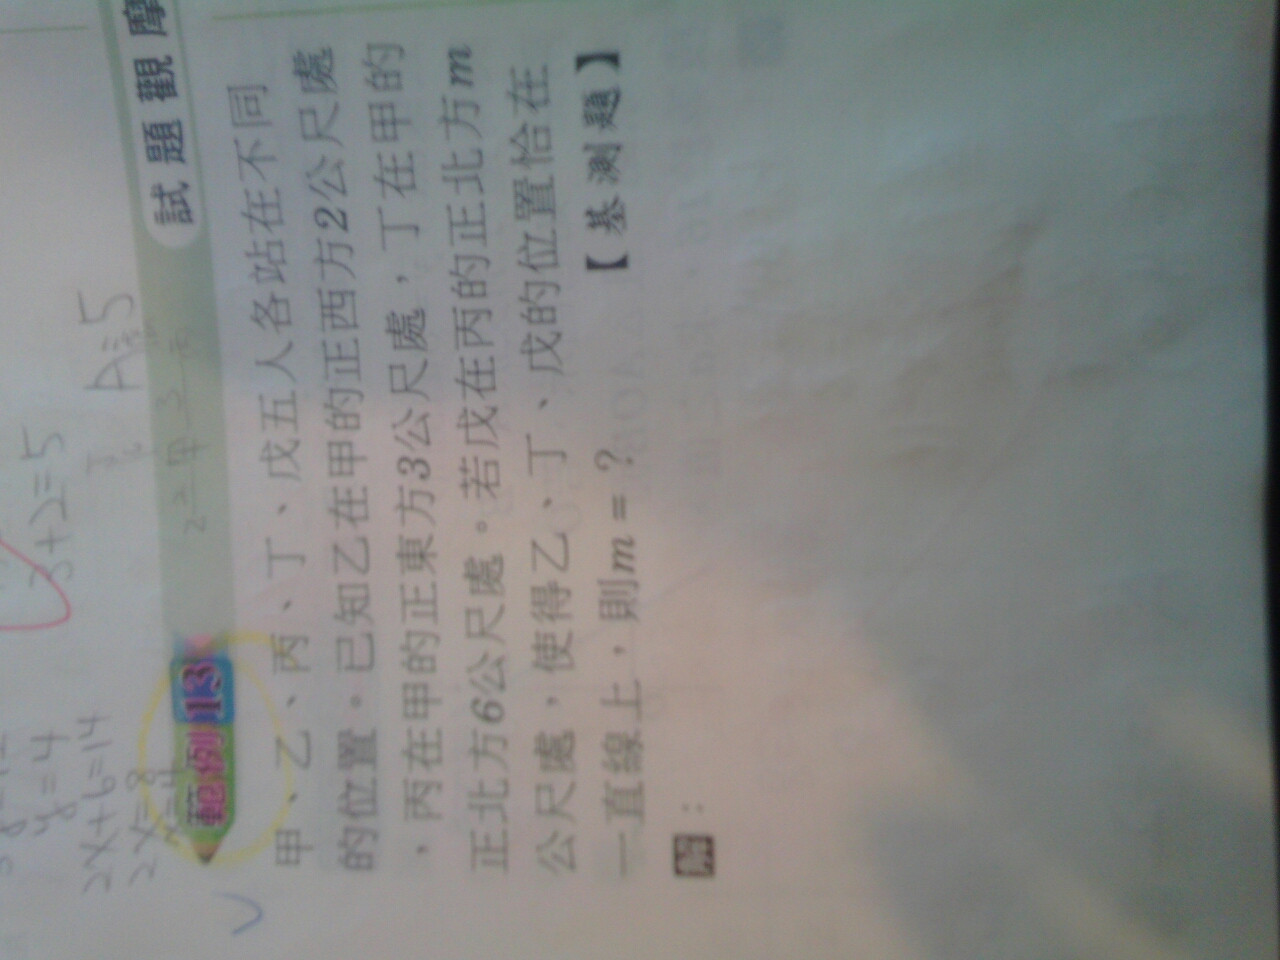 3+2=5
A=5
y=4
2x+6=14
2x=8
試題觀摩
範例13
甲、乙、丙、丁、戊五人各站在不同
的位置。已知乙在甲的正西方2公尺處
，丙在甲的正東方3公尺處，丁在甲的
正北方6公尺處。若戊在丙的正北方m
公尺處，使得乙、丁、戊的位置恰在
一直線上，則m=？
【基測題】
解：